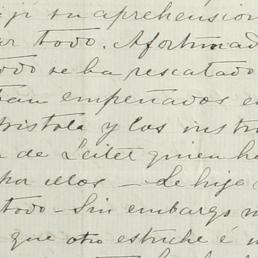 su aprehension
ar todo. Afortunad
odo se ha rescatado
ban empeñados en
tristola y los instr
n de Leiter quien ha
por ellos - Le hije
todo - Sin embargo n
que otro estuche é in